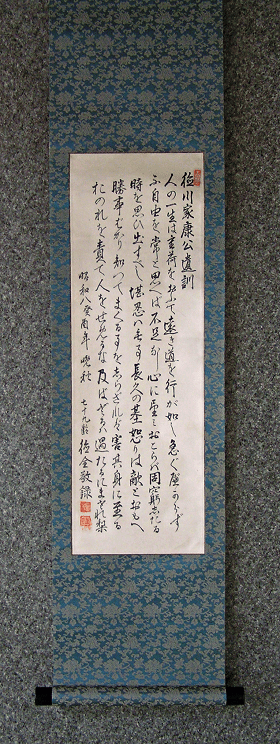 徳川家康公遺訓
人の一生は重荷を負ふて遠き道を行が如し急ぐ遍可らず
不自由を常と思へば不足なし心に望ミおこらバ困窮したる
時を思ひ出すべし堪忍ハ無事長久の基怒りは敵とおもへ
勝事ばかり知つてまくる事を志らざれバ害其身に至る
おのれを責て人をせむるな及ばざるハ過たるにまされ梨
昭和八癸酉年 晩秋
敬録